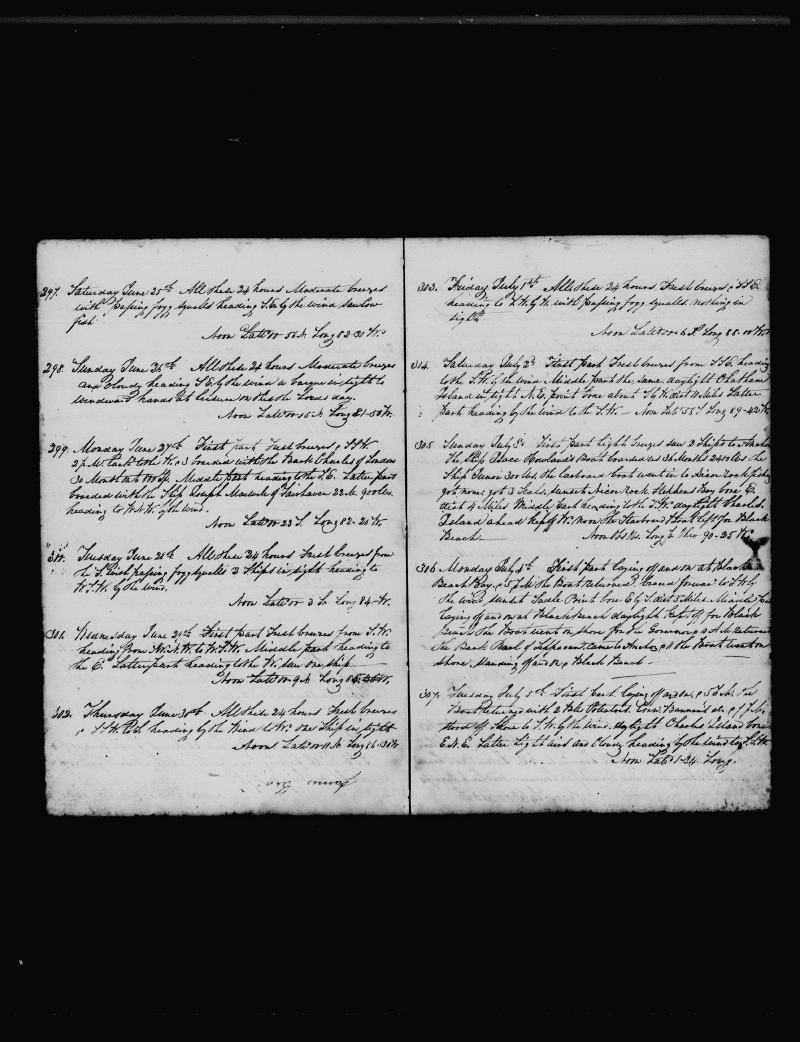 297. Saturday June 25th All these 24 hours Moderate breezes
with passing fogg squalls heading S.E. by the wind saw Cow
fish
Noon Latd 00- N. Long 82-30 W.
298. Sunday June 26th All these 24 hours Moderate breezes
and Cloudy heading S.E. by the wind a barque in sight to
windward hands at leisure on this the Lords day.
Noon Latd 00-15 N. Long 81-50 W.
299. Monday June 27th First part Fresh breezes S.S.W.
2 P.M. tack'd to the W. & 3 boarded with the Bark Charles of London
30 Months out Middle part heading to the S.E. Latter part
boarded with the Ship Joseph of Fairhaven 22 M. 900 bbls
heading to W.N.W. by the wind.
Noon Latd 00-23 S. Long 82-25 W.
300. Tuesday June 28th All these 24 hours Fresh breezes from
the S. with passing fogg squalls 2 Ships in sight heading to
W.S.W. by the wind.
Noon Latd 00-3 Long 84- W.
301. Wednesday June 29th First part Fresh breezes from S.W.
heading from W.N.W. to W.S.W. Middle part heading to
the E. Latter part heading to the W. saw one ship
Noon Latd 00-9 N. Long W.
302. Thursday June 30th All these 24 hours Fresh breezes
S.S.W. heading by the Wind to W. One Ship in sight
Noon Latd 00-11 N. Long 86-30 W
303. Friday July 1st All these 24 hours Fresh breezes S.S.E.
heading to S.W. by W. with passing fogg squalls nothing in
sight
Noon Latd 00-6 S. Long 88-00 W.
304. Saturday July 2d First part Fresh breezes from S.S.E. heading
to the S.W. by the wind Middle part the same daylight Chatham
Island in sight N.E. point bore about S by W. dist 11 Miles Latter
part heading by the wind to the S.W. - Noon Latd Long 89-42 W
305. Sunday July 3d First part light breezes saw 2 Ships to
The Ship Rowland's Boat boarded us 36 Months 2400 bbls the
Ship Junior 300 bbls the Larboard boat went in to Dixon rock fishing
got none got 3 Seals. Sunset Nicon Rock Stephens Bay bore E.
dist 4 Miles Middle part heading to the S.W. daylight Charles
Island ahead Kept W. Noon the Starboard Boat left for Black
Beach. Noon Obs No. Long by Chro 90-25 W
306. Monday July 4th First part laying off and on at Black
Beach Bay, 5 P.M. the Boat Returned braced forward to S.W. by
the wind, sunset Saddle Point bore E by S. dist 5 Miles Middle
laying off and on at Black Beach daylight Kept off for Black
Beach The Boat went on shore for the Governor, 10 A.M. Returned
the Bark Pearl of Sippican came to Anchor, 11 the Boat went on
shore. standing off and on Black Beach -
307. Tuesday July 5th First part laying off and on, 5 P.M. the
Boat Returned with 2 bbls Potatoes. Corn. Bannanas etc.
stood off shore to S.W. by the wind. daylight Charles Island bore
E.N.E. Latter light airs and Cloudy heading by the wind to S.S.W.
Noon Latd 1-34 Long.